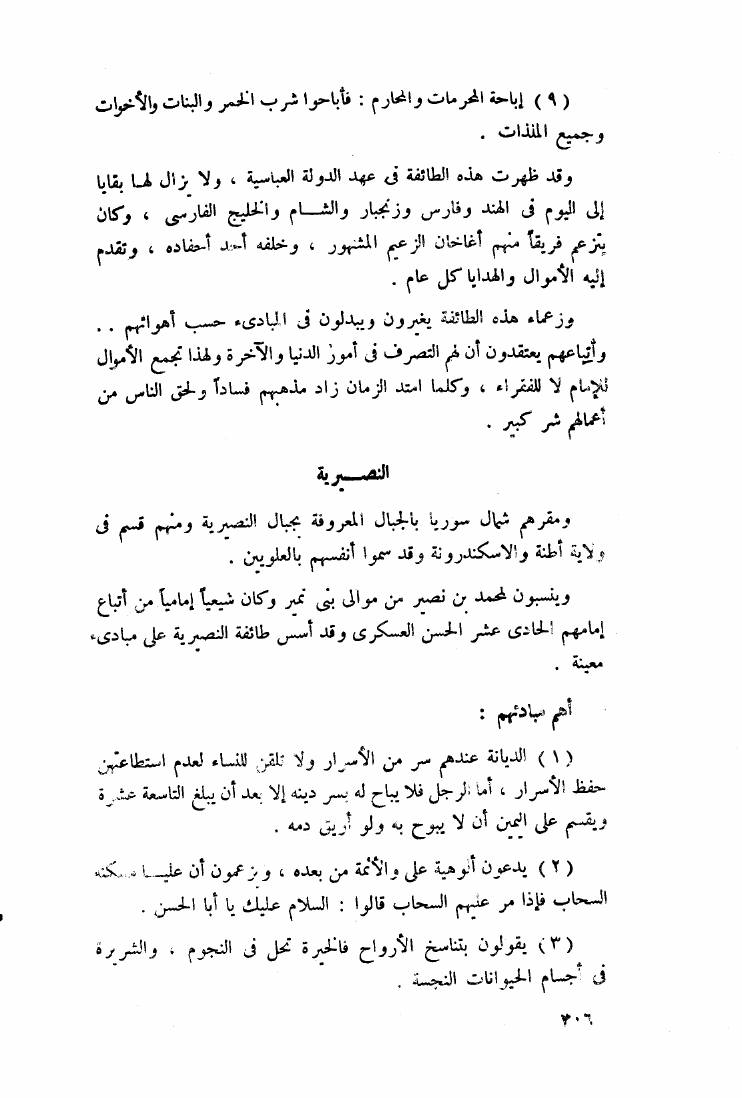 ( ٩ ) إباحة المحرمات والمحارم : فأباحوا شرب الخمر والبنات والأخوات
وجميع الملذات .
وقد ظهرت هذه الطائفة فى عهد الدولة العباسية ، ولا يزال لها بقايا
إلى اليوم فى الهند وفارس وزنجبار والشام والخليج الفارسى ، وكان
يتزعم فريقاً منهم أغاخان الزعيم المشهور ، وخلفه أحد أحفاده ، وتقدم
إليه الأموال والهدايا كل عام .
وزعماء هذه الطائفة يغيرون ويبدلون فى المبادىء حسب أهوائهم . .
وأتباعهم يعتقدون أن لهم التصرف فى أمور الدنيا والآخرة ولهذا تجمع الأموال
للإمام لا للفقراء ، وكلما امتد الزمان زاد مذهبهم فساداً ولحق الناس من
أعمالهم شر كبير .
النصيرية
ومقرهم شمال سوريا بالجبال المعروفة بجبال النصيرية ومنهم قسم فى
ولاية أطنة والاسكندرونة وقد سموا أنفسهم بالعلويين .
وينسبون لمحمد بن نصير من موالى بنى نمير وكان شيعياً إمامياً من أتباع
إمامهم الحادى عشر الحسن العسكرى وقد أسس طائفة النصيرية على مبادىء
معينة .
أهم مبادئهم :
( ١ ) الديانة عندهم سر من الأسرار ولا تلقن للنساء لعدم استطاعتهن
حفظ الأسرار ، أما الرجل فلا يباح له بسر دينه إلا بعد أن يبلغ التاسعة عشرة
ويقسم على اليمين أن لا يبوح به ولو أريق دمه .
( ٢ ) يدعون ألوهية على والأئمة من بعده ، ويزعمون أن عليا مسكنه
السحاب فإذا مر عليهم السحاب قالوا : السلام عليك يا أبا الحسن .
( ٣ ) يقولون بتناسخ الأرواح فالخيرة تحل فى النجوم ، والشريرة
فى أجسام الحيوانات النجسة .
٣٠٦